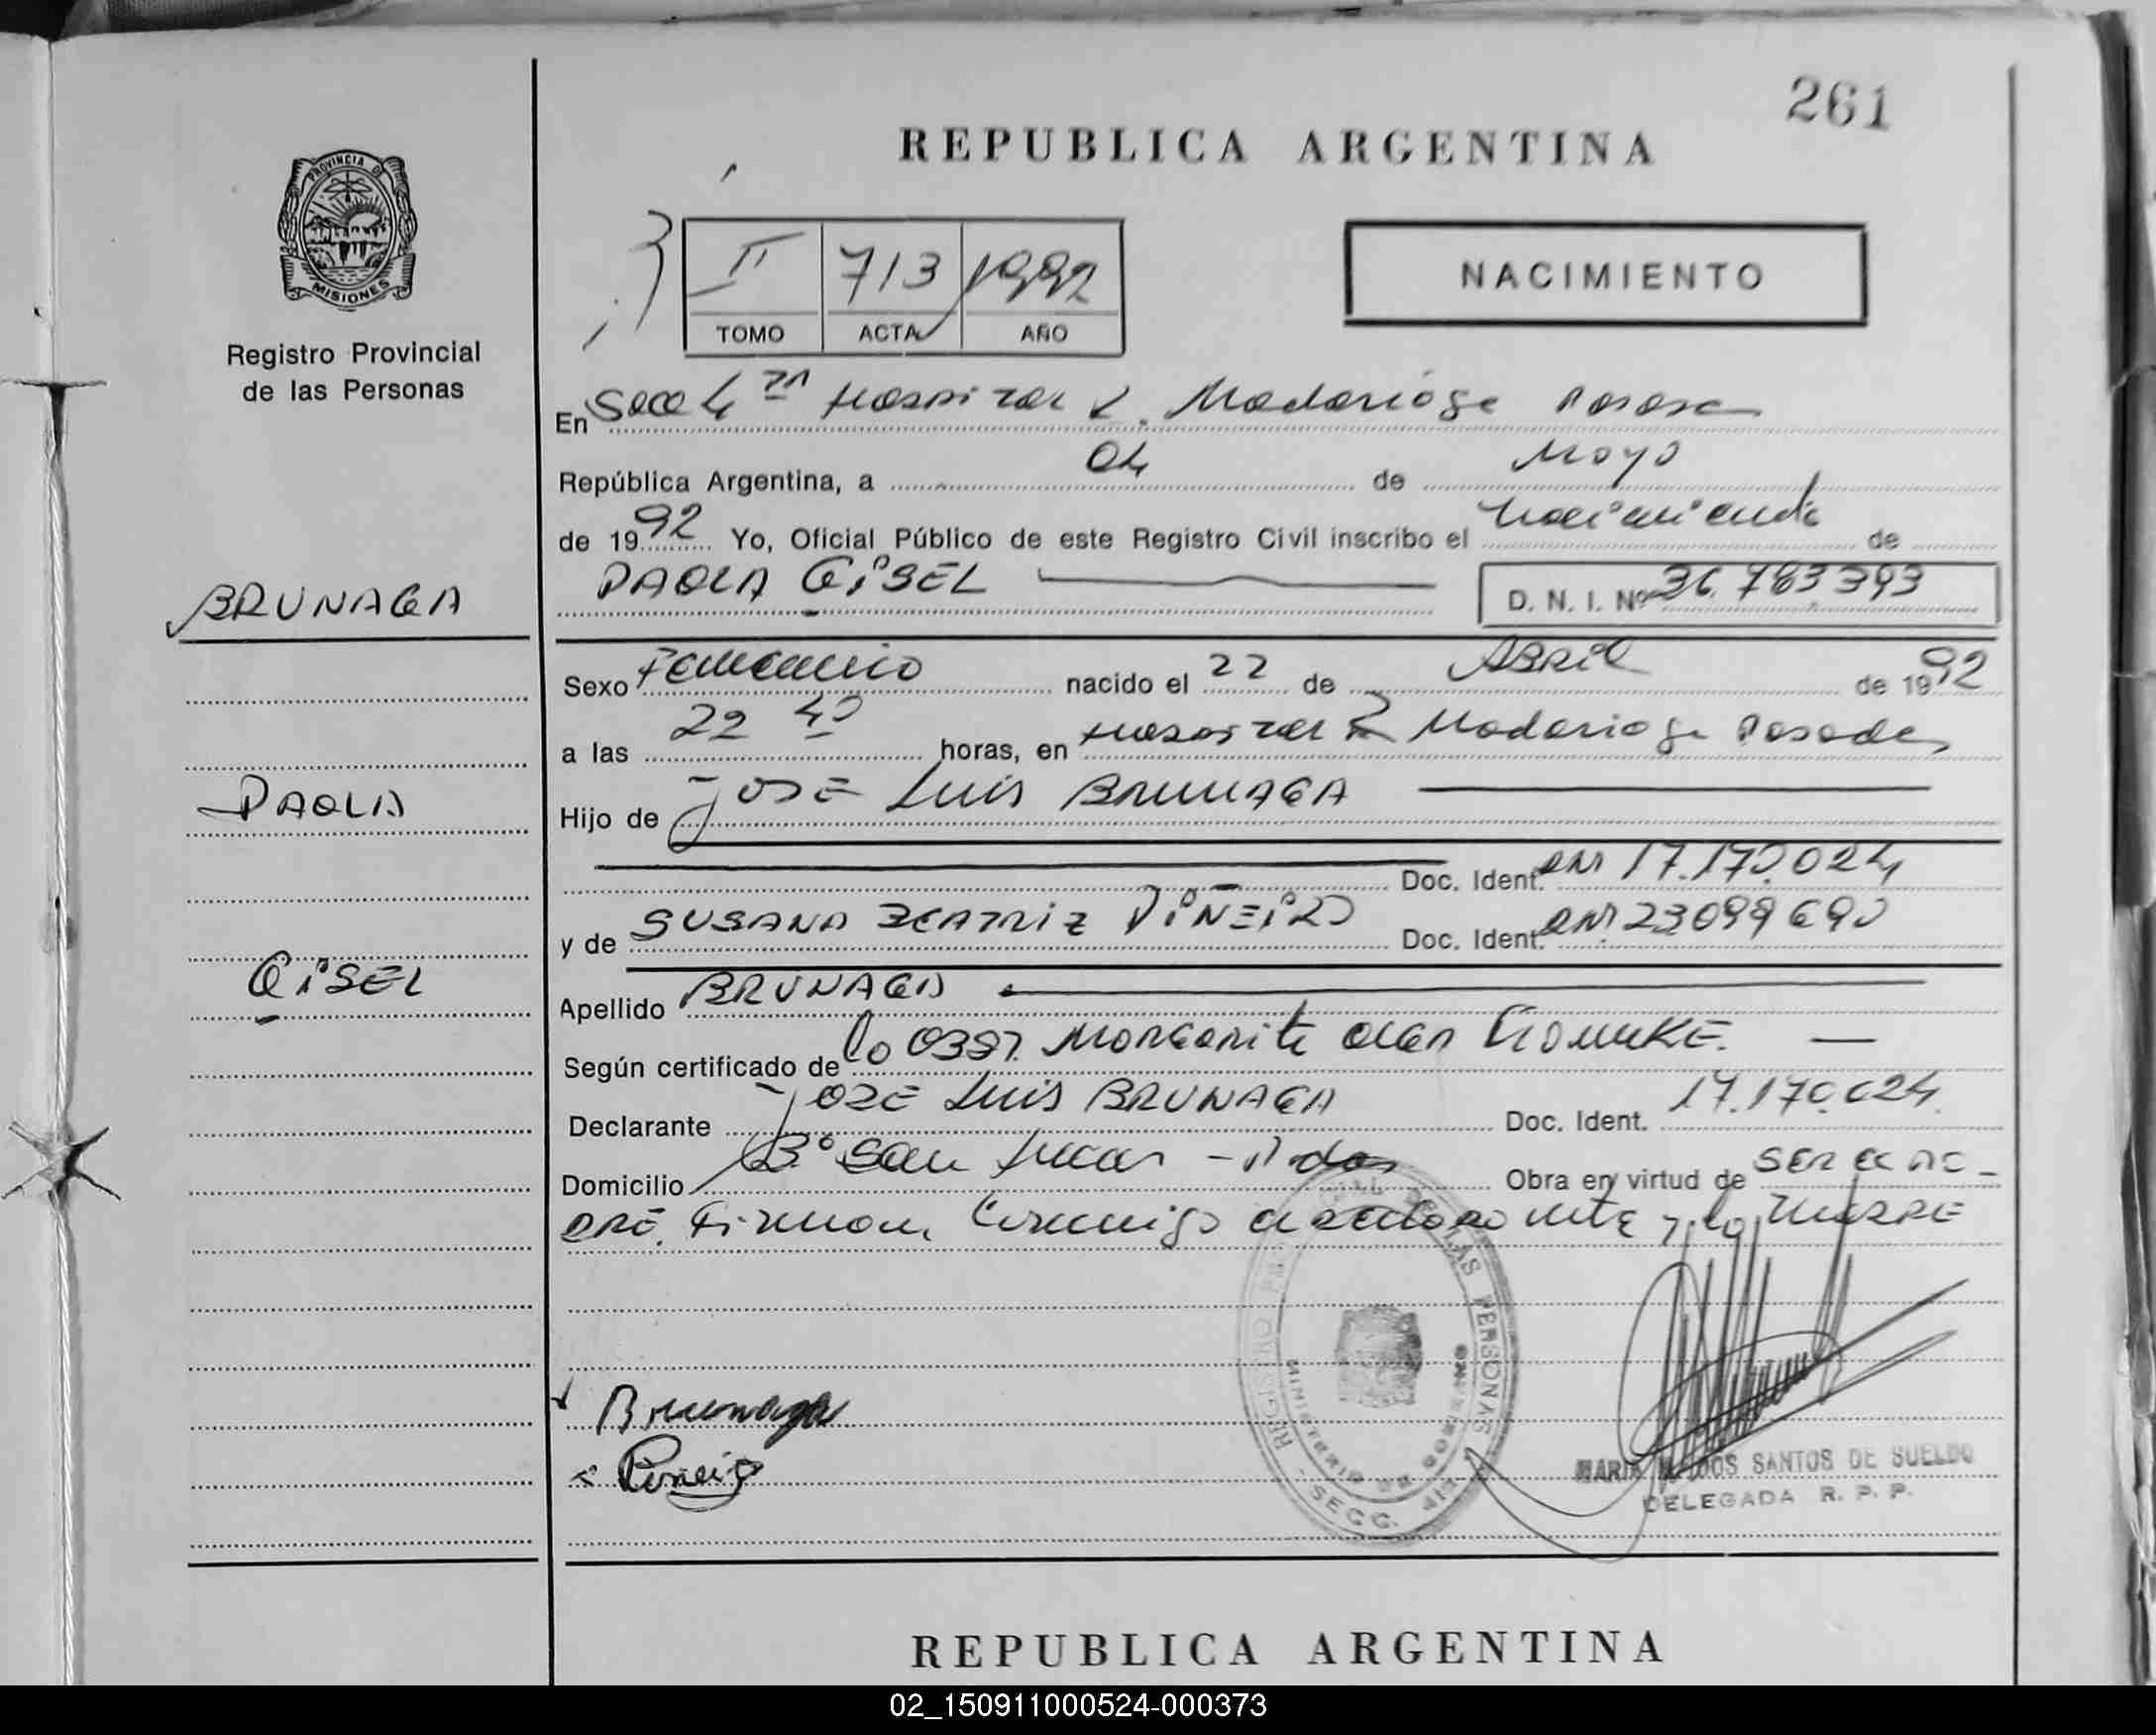 261
REPUBLICA ARGENTINA
PROVINCIA DE
MISIONES
Registro Provincial
de las Personas
II 713 1992
TOMO ACTA AÑO
NACIMIENTO
En Secc 4ta Hospital R. Madariaga Posadas
República Argentina, a 04 de Mayo
de 1992 Yo, Oficial Público de este Registro Civil inscribo el nacimiento de
PAOLA GISEL D. N. I. Nº 36.783393
BRUNAGA
Sexo Femenino nacido el 22 de ABRIL de 1992
a las 22 40 horas, en Hospital R Madariaga Posadas
PAOLA
Hijo de JOSE Luis BRUNAGA
Doc. Ident. DNI 17.170.024
y de SUSANA BEATRIZ PIÑEIRO Doc. Ident. DNI 23099690
GISEL
Apellido BRUNAGA
Según certificado de la OBST. MARGARITA
Declarante JOSE Luis BRUNAGA Doc. Ident. 17.170.024
Domicilio Bº San Lucas - Pdas Obra en virtud de SER EL PA-
DRE. Firman Conmigo el declarante y la MADRE
Brunaga
Piñeiro
DE LAS PERSONAS
MINISTERIO DE GOBIERNO
SECC.
MARIA DOS SANTOS DE SUELDO
DELEGADA R. P. P.
REPUBLICA ARGENTINA
02_150911000524-000373